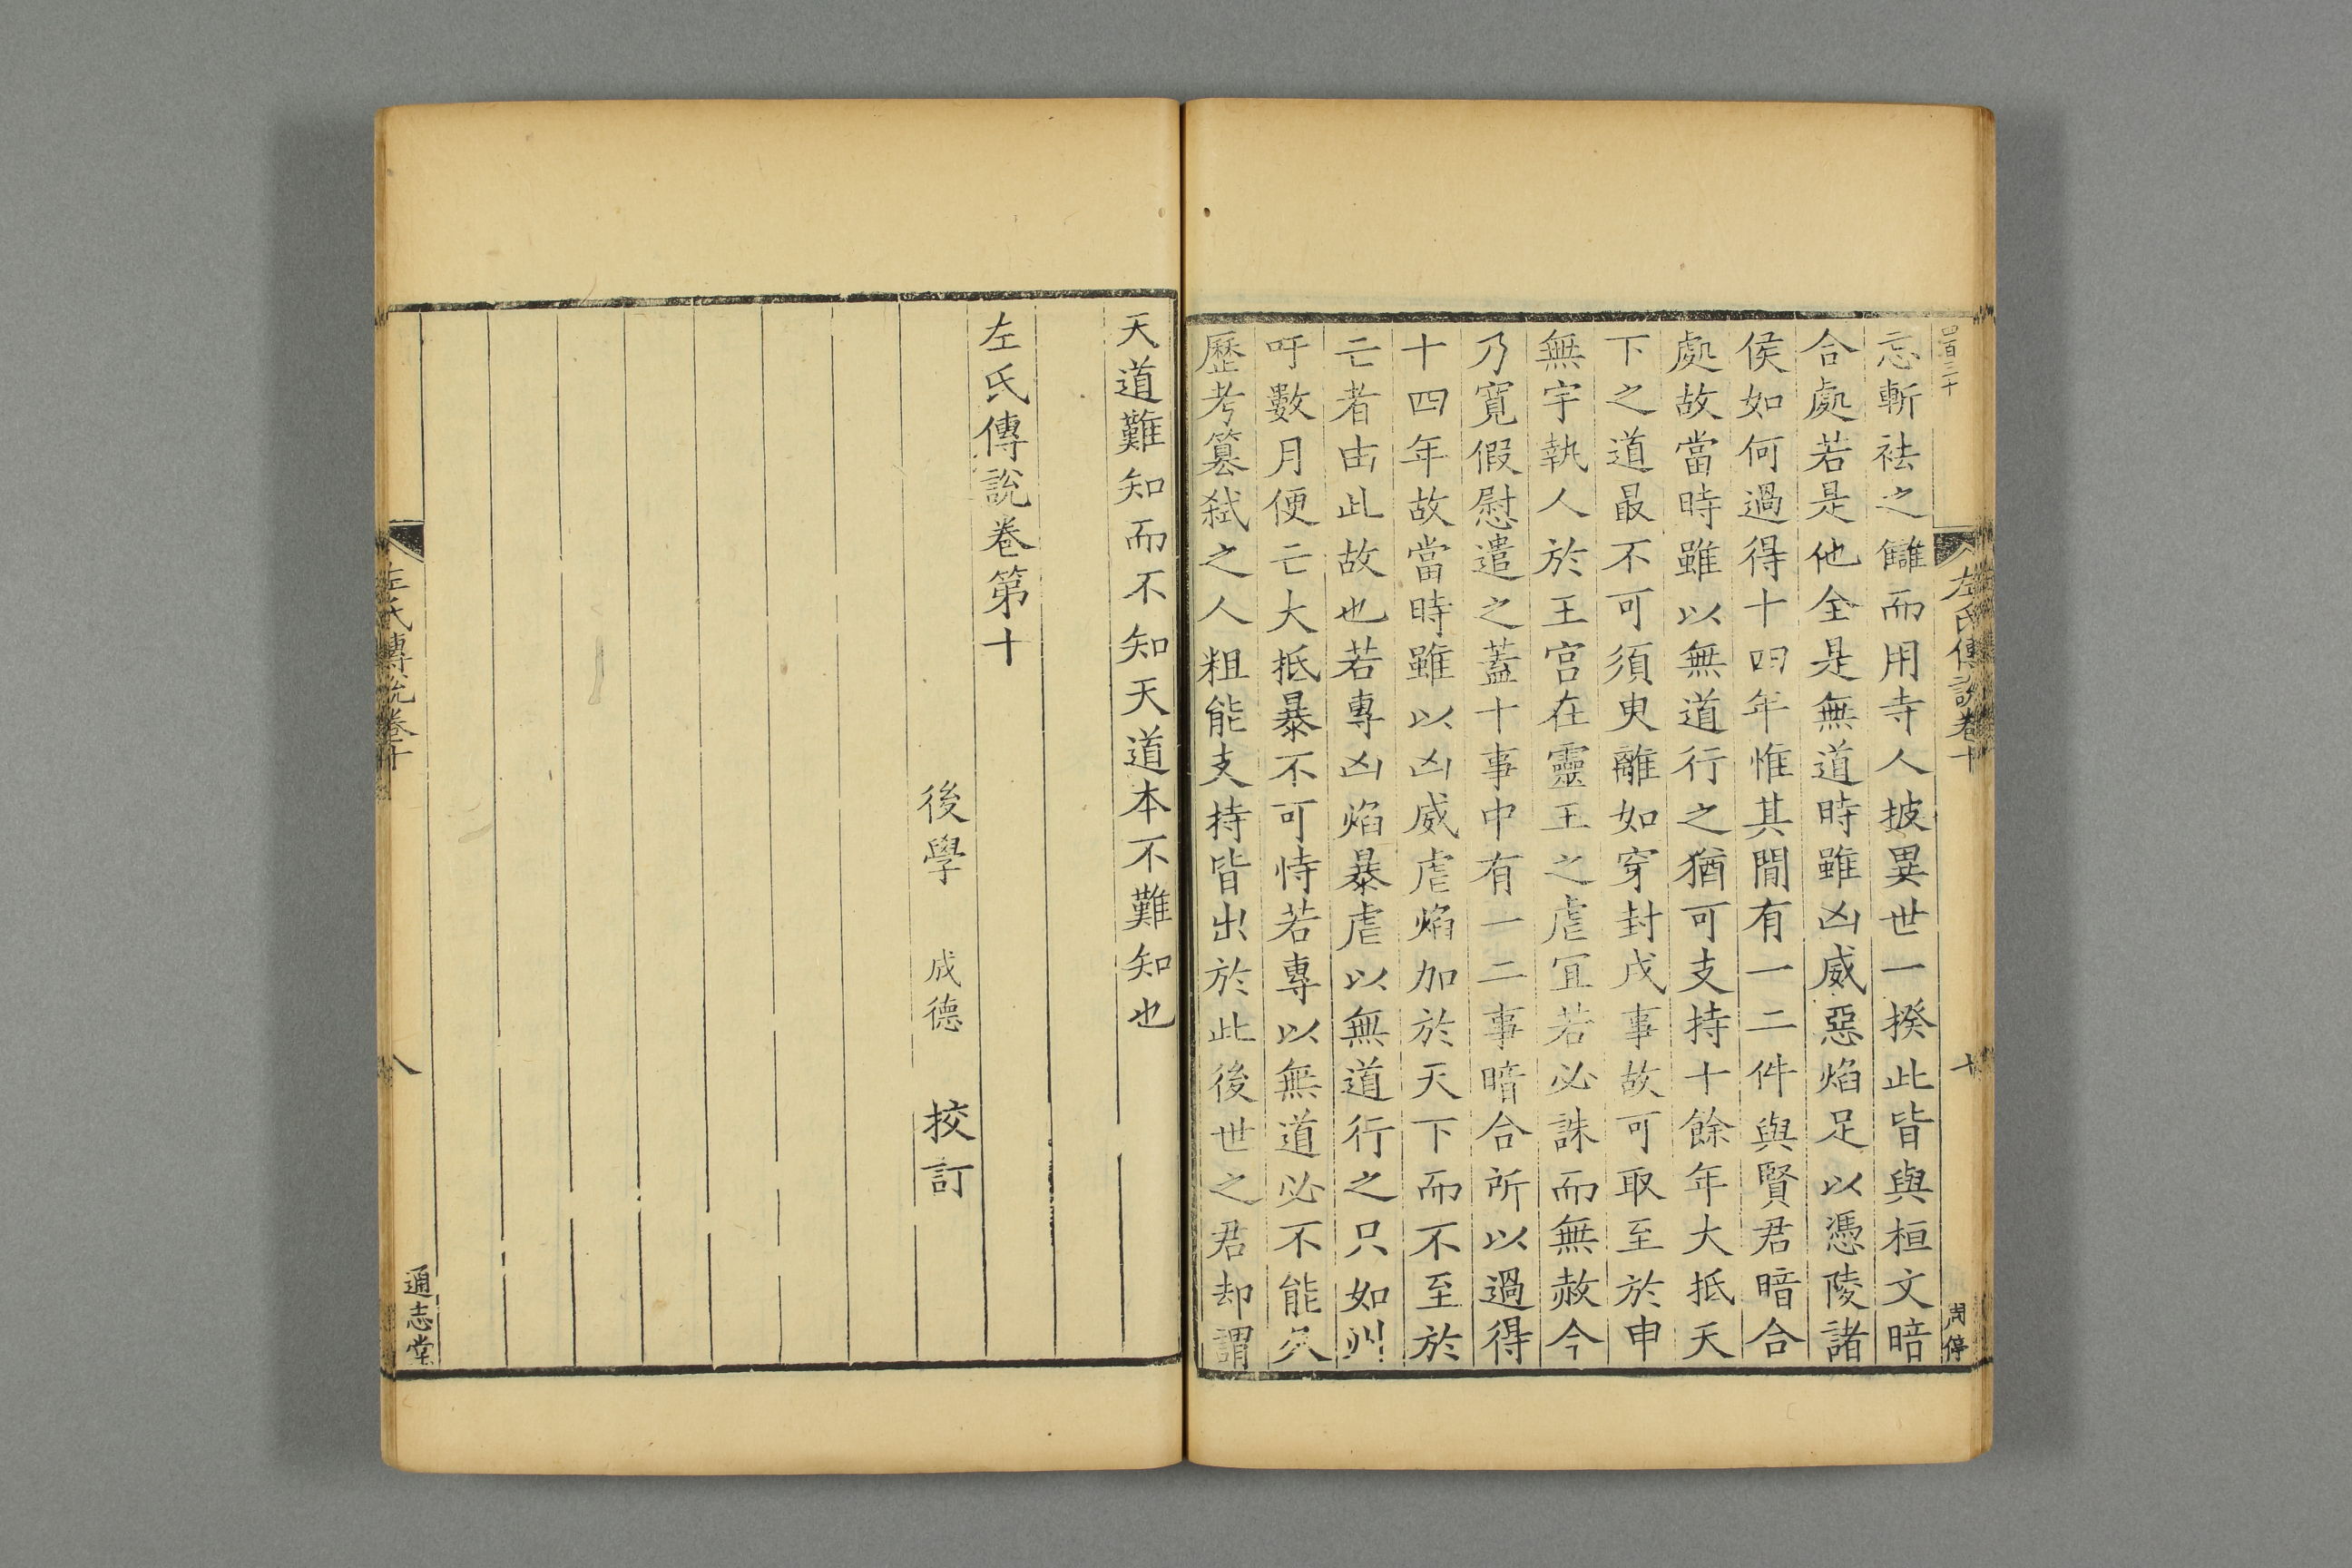 四百三十
左氏傳說卷十
十
周停
忘斬袪之讎而用寺人披異世一揆此皆與桓文暗
合處若是他全是無道時雖凶威惡焰足以憑陵諸
侯如何過得十四年惟其間有一二件與賢君暗合
處故當時雖以無道行之猶可支持十餘年大抵天
下之道最不可須臾離如穿封戌事故可取至於申
無宇執人於王宮在靈王之虐宜若必誅而無赦今
乃寬假慰遣之蓋十事中有一二事暗合所以過得
十四年故當時雖以凶威虐焰加於天下而不至於
亡者由此故也若專凶焰暴虐以無道行之只如州
吁數月便亡大抵暴不可恃若專以無道必不能久
歷考篡弑之人粗能支持皆出於此後世之君却謂
天道難知而不知天道本不難知也
左氏傳說卷第十
後學 成德 挍訂
左氏傳說卷十
八
通志堂